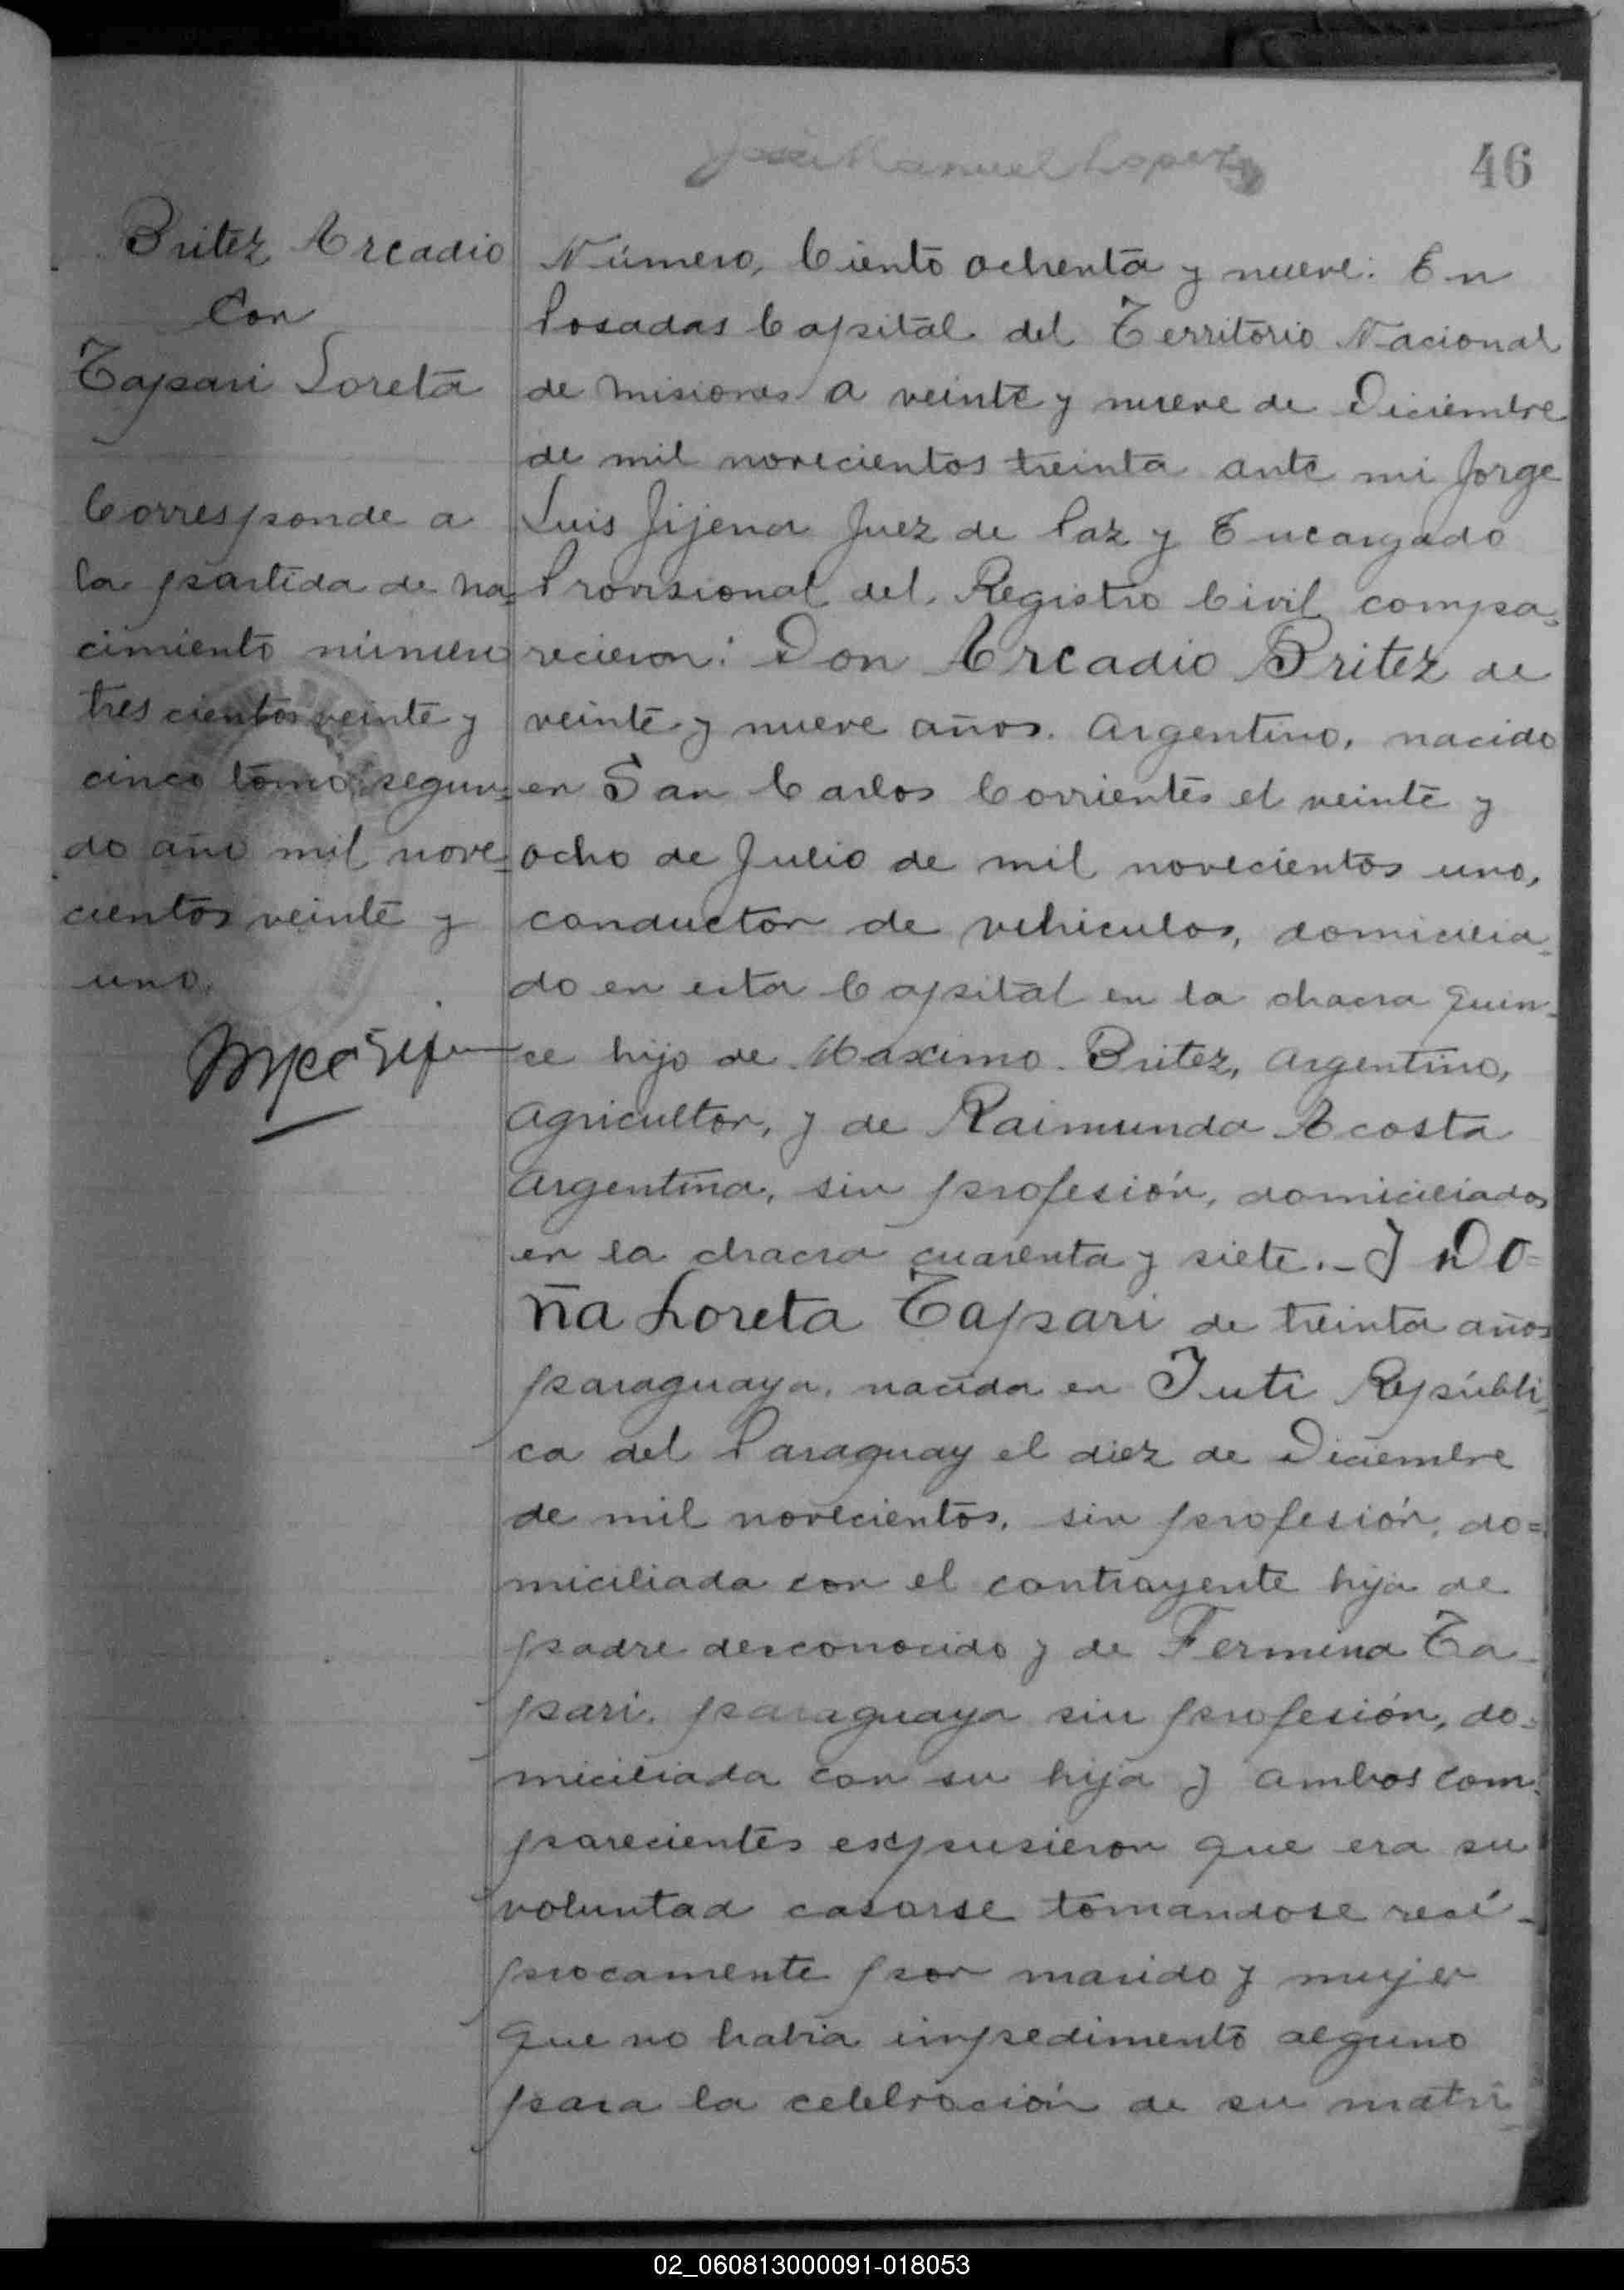 José Manuel Lopez
46
Britez Arcadio
Con
Tapari Loreta
Corresponde a
la partida de na=
cimiento número
tres cientos veinte y
cinco tomo segun=
do año mil nove=
cientos veinte y
uno.
Número, Ciento ochenta y nueve: En
Posadas Capital del Territorio Nacional
de Misiones a veinte y nueve de Diciembre
de mil novecientos treinta ante mi Jorge
Luis Jijena Juez de Paz y Encargado
Provisional del Registro Civil compa=
recieron: Don Arcadio Britez de
veinte y nueve años. Argentino, nacido
en San Carlos Corrientes el veinte y
ocho de Julio de mil novecientos uno,
conductor de vehiculos, domicilia=
do en esta Capital en la chacra quin=
ce hijo de Maximo Britez, Argentino,
Agricultor, y de Raimunda Acosta
Argentina, sin profesión, domiciliados
en la chacra cuarenta y siete.- Y Do=
ña Loreta Tapari de treinta años
paraguaya, nacida en Yuti Repúbli=
ca del Paraguay el diez de Diciembre
de mil novecientos, sin profesión, do=
miciliada con el contrayente hija de
padre desconocido y de Fermina Ta-
pari, paraguaya sin profesión, do=
miciliada con su hija y ambos com=
parecientes expusieron que era su
voluntad casarse tomandose recí-
procamente por marido y mujer
que no habia impedimento alguno
para la celebración de su matri-
02_060813000091-018053